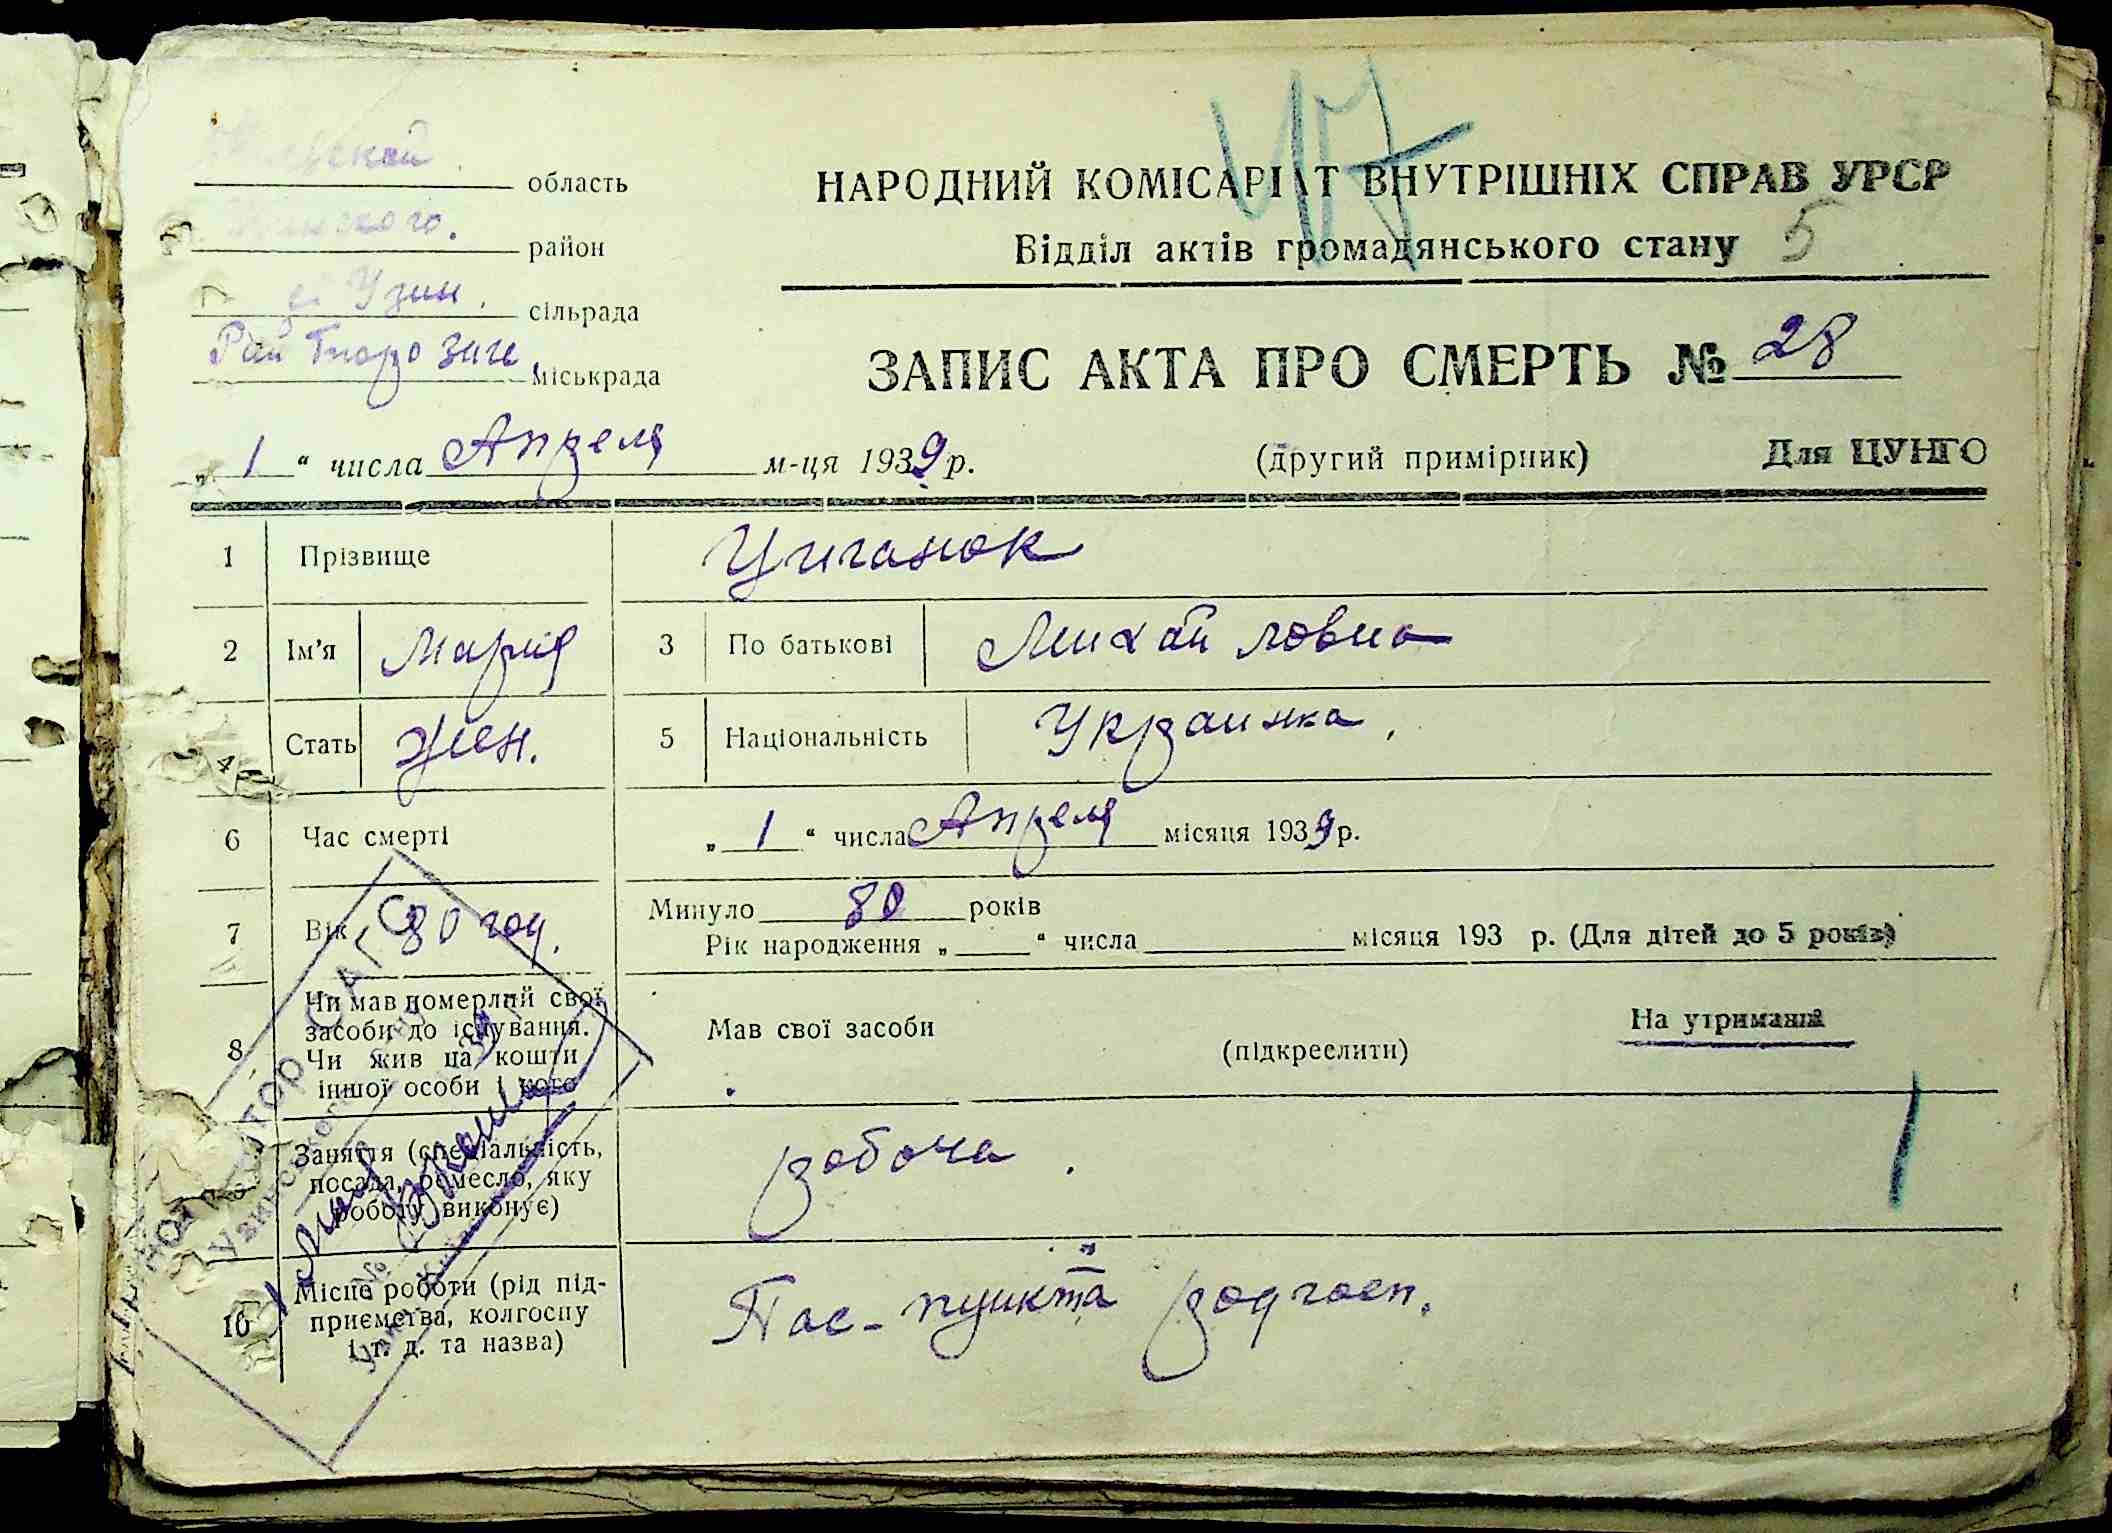 Киевской область
Узинского. район
с. Узин. сільрада
Рай Бюро Загс міськрада
НАРОДНИЙ КОМІСАРІАТ ВНУТРІШНІХ СПРАВ УРСР
Відділ актів громадянського стану 5
ЗАПИС АКТА ПРО СМЕРТЬ № 28
„ 1 “ числа Апреля м-ця 1939 р. (другий примірник) Для ЦУНГО
1 Прізвище Циганок
2 Ім'я Мария 3 По батькові Михайловна
4 Стать жен. 5 Національність Украинка.
6 Час смерті „ 1 “ числа Апреля місяця 1939 р.
7 Вік 80 год. Минуло 80 років
Рік народження „ “ числа місяця 193 р. (Для дітей до 5 років)
8 Чи мав померлий свої засоби до існування. Чи жив на кошти іншої особи і кого
Мав свої засоби (підкреслити) На утриманні
Заняття (спеціальність, посада, ремесло, яку роботу виконує) робоча.
10 Місце роботи (рід підприємства, колгоспу і т. д. та назва) пункта радгосп.